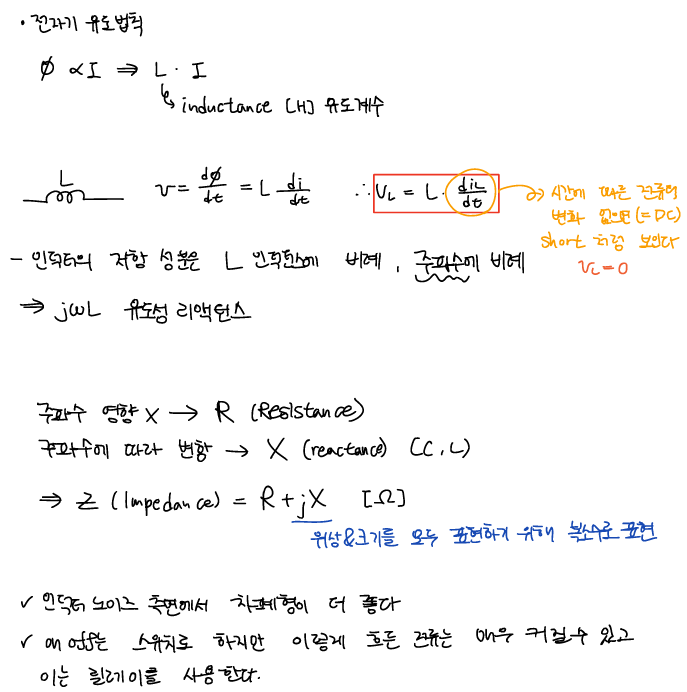 • 전자기 유도법칙
Ø ∝ I ⇒ L · I
↳ inductance [H] 유도계수
L
v = dø/dt = L di/dt ∴ V_L = L · di_L/dt → 시간에 따른 전류의
변화 없으면 (= DC)
short 처럼 보인다
V_L = 0
- 인덕터의 저항 성분은 L 인덕턴스에 비례, 주파수에 비례
⇒ jωL 유도성 리액턴스
주파수 영향 X → R (Resistance)
주파수에 따라 변함 → X (reactance) (C, L)
⇒ Z (Impedance) = R + jX [Ω]
위상&크기를 모두 표현하기 위해 복소수로 표현
✓ 인덕터 노이즈 측면에서 차폐형이 더 좋다
✓ on off는 스위치로 하지만 이렇게 흐르는 전류는 매우 커질 수 있고
이는 릴레이를 사용한다.